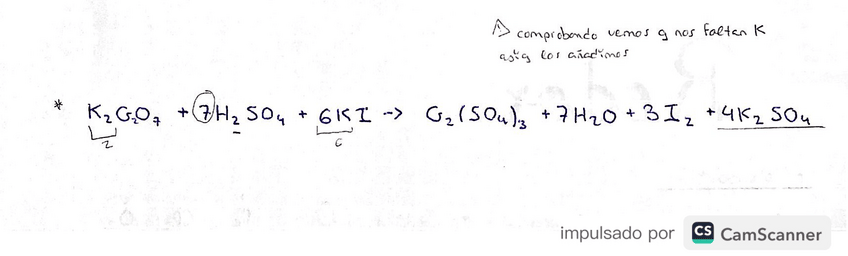 comprobando vemos q nos faltan K
así q los añadimos
* K₂Cr₂O₇ + 7H₂SO₄ + 6KI -> Cr₂(SO₄)₃ + 7H₂O + 3I₂ + 4K₂SO₄
2 6
impulsado por CS CamScanner